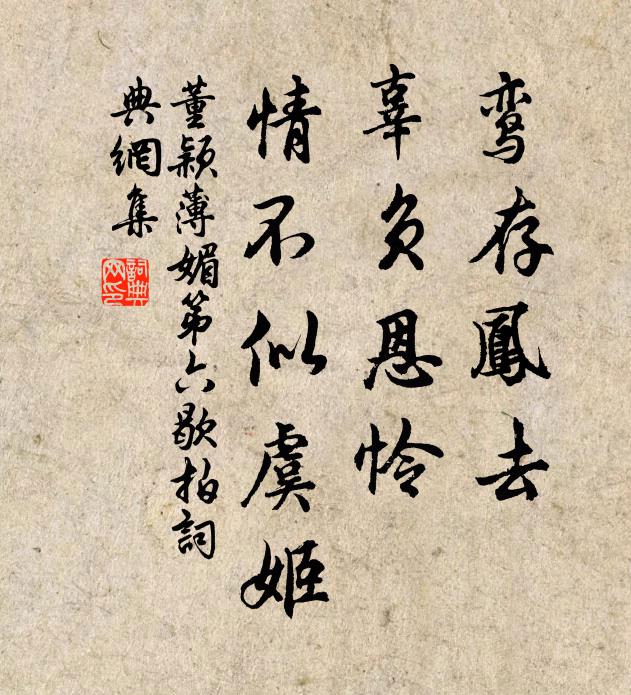 鸾存鳳去
辜负恩怜
情不似虞姬
董颖薄媚第六歇拍詞
典網集
詞典
网印